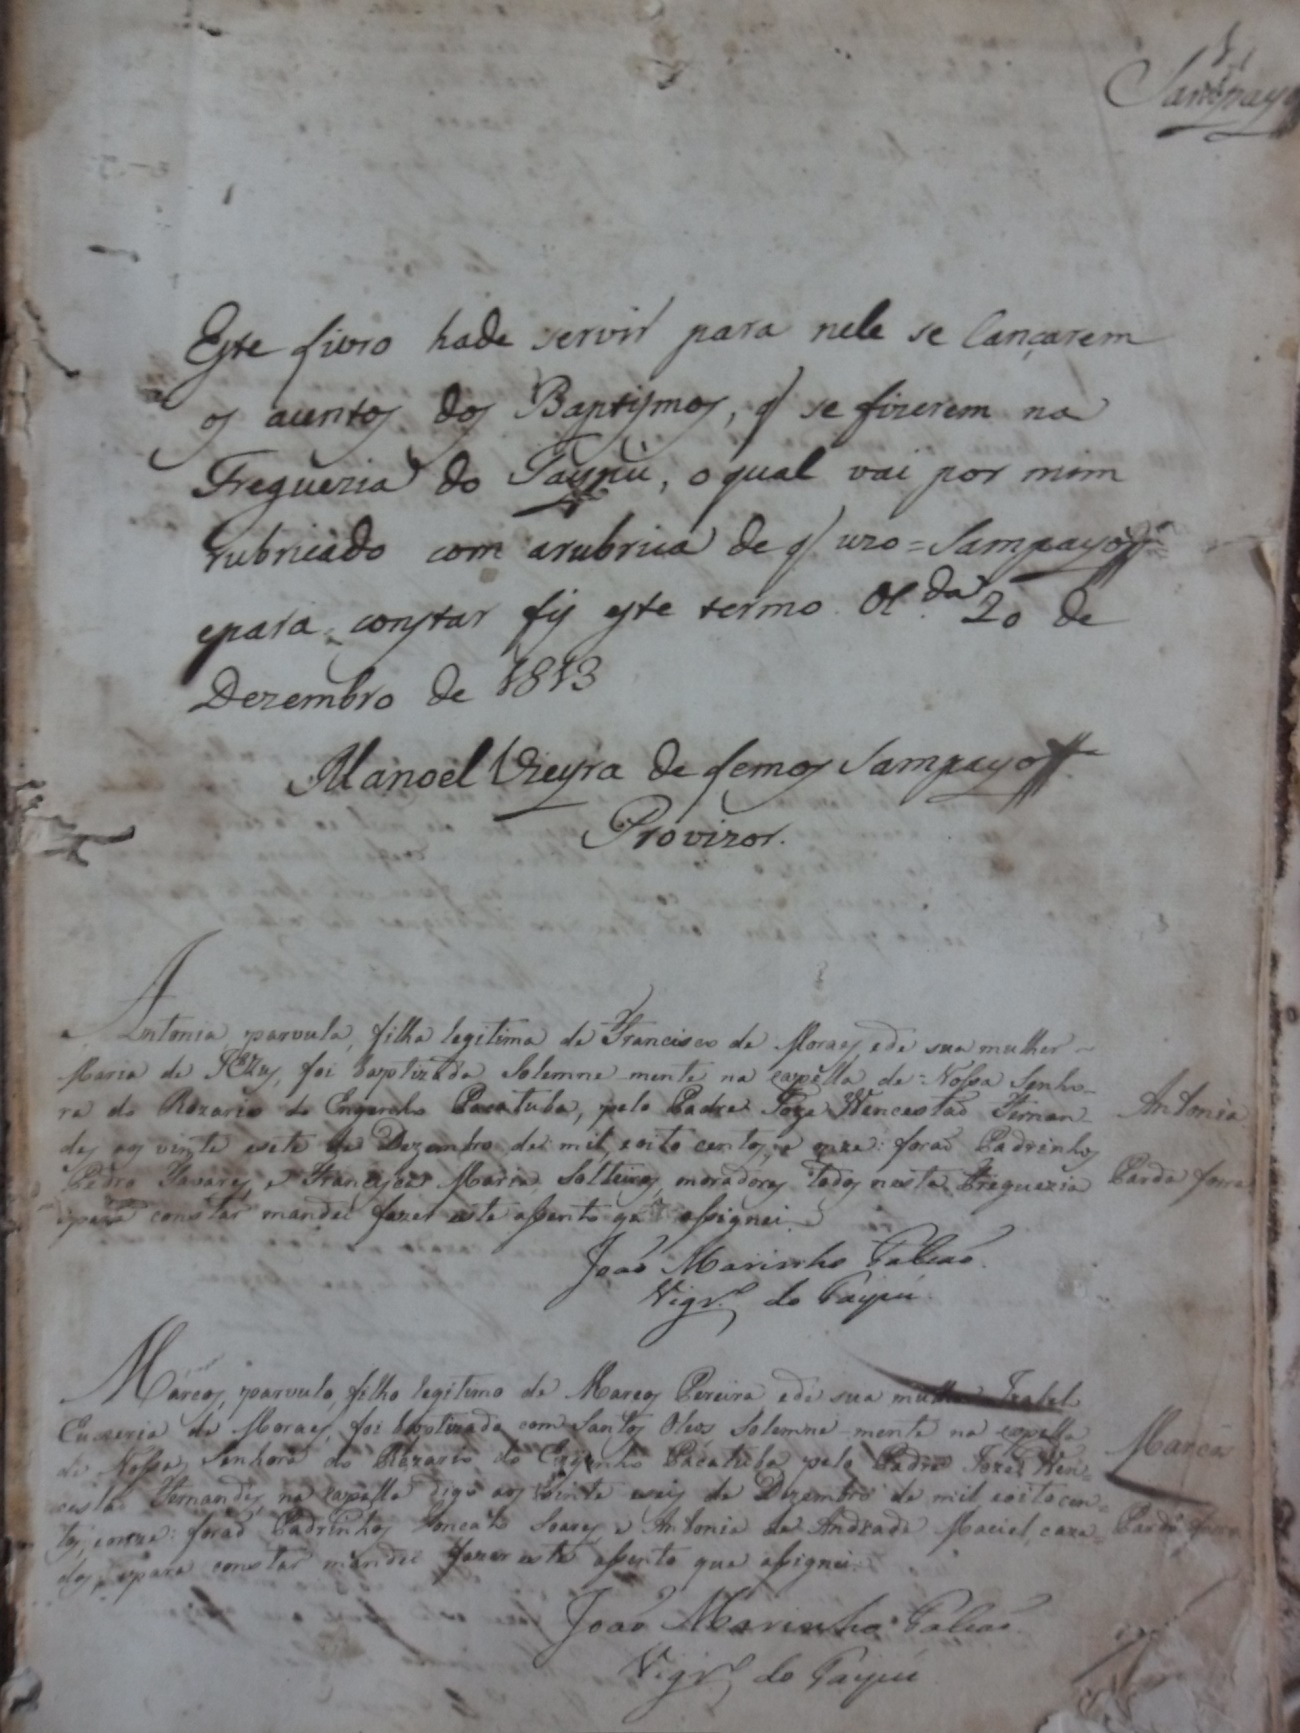 1
Sampayo
Este livro hade servir para nele se lançarem
os acentos dos Baptysmos, q̃ se fizerem na
Freguezia do Taypú, o qual vai por mim
rubricado com arubrica de q̃ uzo = Sampayo =
epara constar fiz este termo. Ol.da 20 de
Dezembro de 1813
Manoel Vieyra de Lemos Sampayo
Provizor.
Antonia, parvula, filha legitima de Francisco de Moraes, ede sua mulher
Maria de, foi baptizada Solemne mente na capella de Nossa Senho-
ra do Rozario do Engenho Pacatuba, pelo Padre Joze Wencesláo Fernan-
des aos vinte esete de Dezembro de mil, eoito centos, e onze: foraõ Padrinhos
Pedro Tavares, e Francisca Maria, Solteiros, moradores todos nesta Freguezia
epara constar mandei fazer este assento que assignei.
Antonia
Parda forra
João Marinho Falcão
Vigr.o do Taypú.
Marcos, parvulo, filho legitimo de Marcos Pereira ede sua mulher Izabel
de Moraes, foi baptizado com Santos Oleos Solemne mente na capella
de Nossa Senhora do Rozario do Engenho Pacatuba pelo Padre Joze Wen-
cesláo Fernandes, na capella digo aos vinte eseis de Dezembro de mil eoitocen-
tos, eonze: foraõ Padrinhos Soares, e Antonia de Andrade Maciel, caza-
dos, epara constar mandei fazer este assento que assignei.
Marcos
Pardo forro
João Marinho Falcão
Vigr.o do Taypú